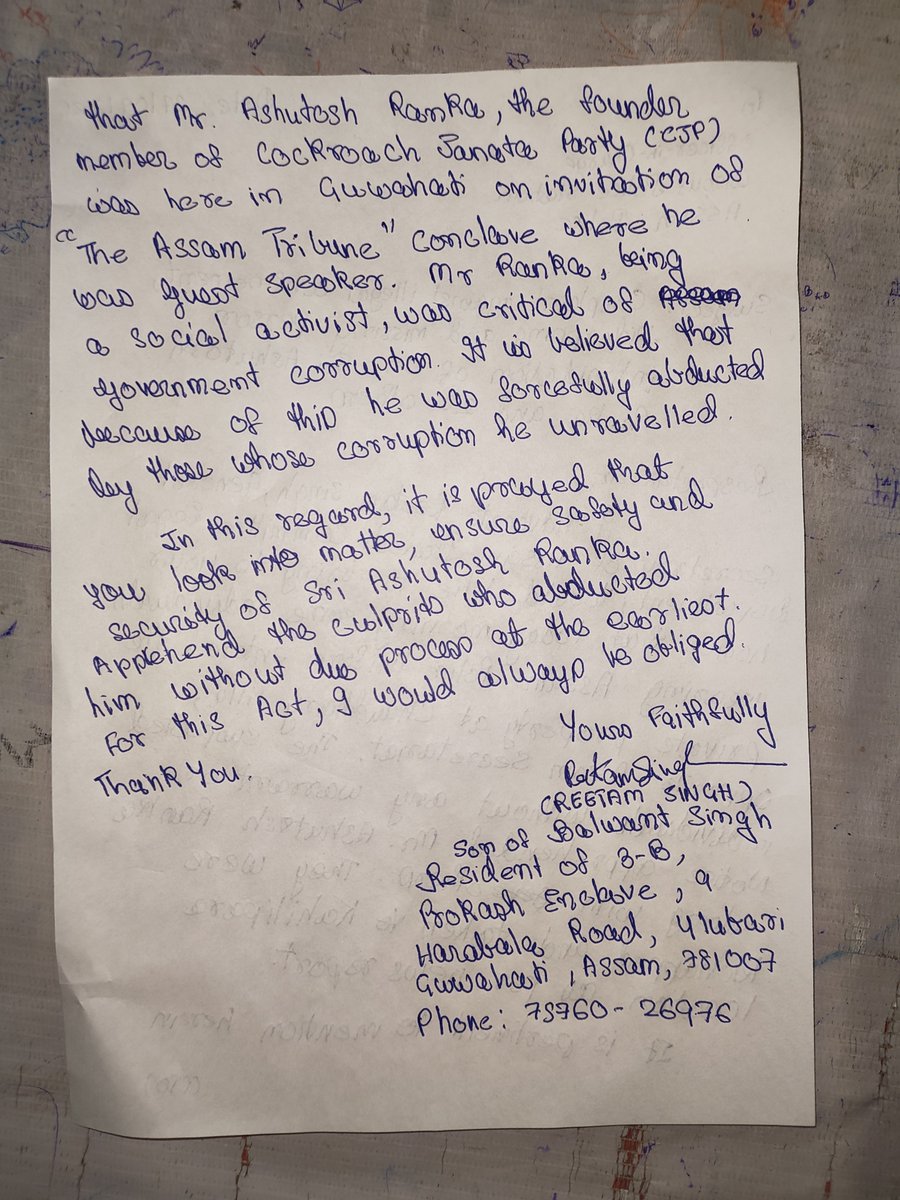 that Mr. Ashutosh Ranka, the founder
member of Cockroach Janata Party (CJP)
was here in Guwahati on invitation of
"The Assam Tribune" Conclave where he
was guest speaker. Mr Ranka, being
a social activist, was critical of
government corruption. It is believed that
because of this he was forcefully abducted
by those whose corruption he unravelled.
In this regard, it is prayed that
you look into matter, ensure safety and
security of Sri Ashutosh Ranka.
Applehend the culprits who abducted
him without due process at the earliest.
For this Act, I would always be obliged.
Thank You.
Yours Faithfully
(REETAM SINGH)
Son of Balwant Singh
Resident of 3-B,
Prokash Enclave, 9
Harabala Road, Ulubari
Guwahati, Assam, 781007
Phone: 75760-26976